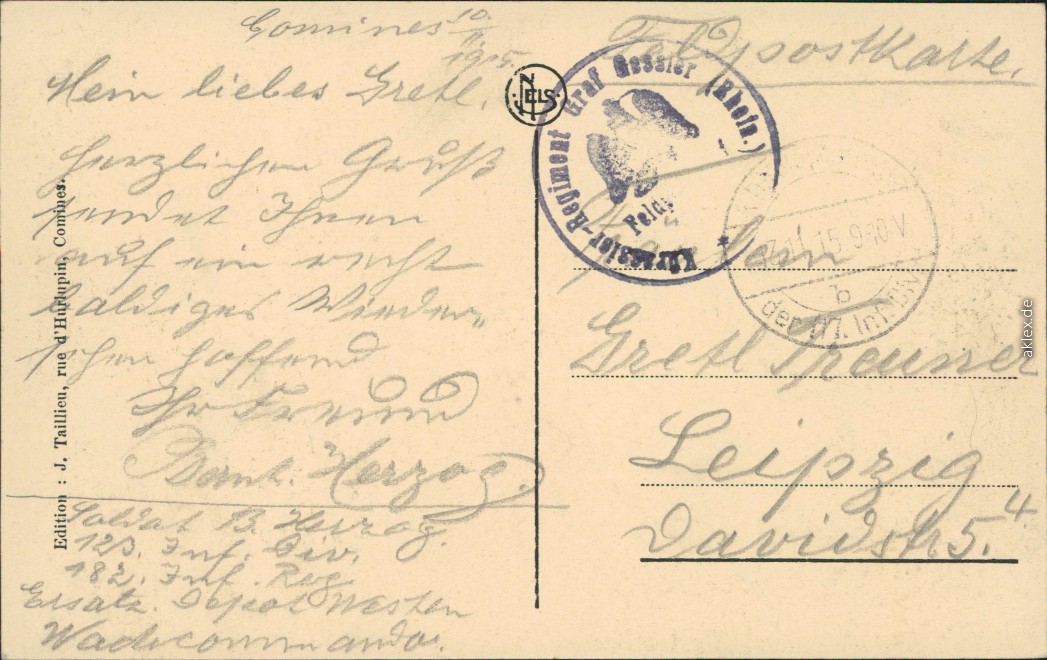 Comines 10.
11.
1915.
Mein liebes Gretl.
herzlichen Gruß
sendet Ihnen
auf ein recht
baldiges Wieder„
sehen hoffend
Ihr Freund
Bernh. Herzog.
Soldat B. Herzog.
123. Inf. Div.
182. Inf. Reg.
Ersatz. Depot Westen
Wachcommando.
Edition : J. Taillieu, rue d'Hurlupin, Comines.
NELS
Feldpostkarte.
Kürassier-Regiment Graf Gessler (Rhein.)
11.15.9-10V
b
der Inf. Div.
Fräulein
Gretl
Leipzig
Davidstr 5.⁴
aklex.de